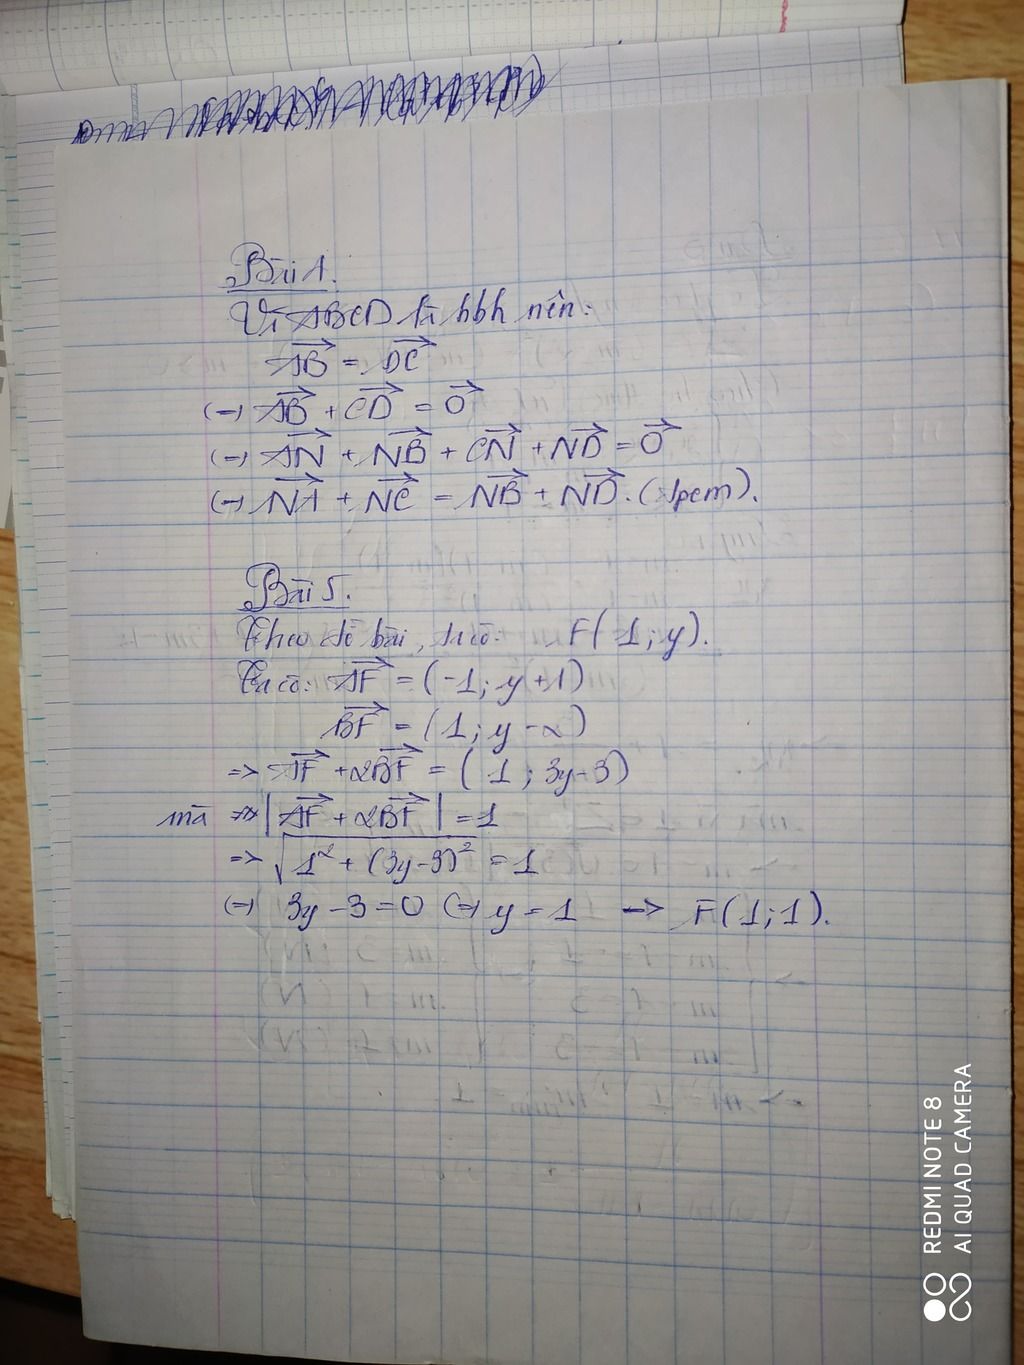 Bài 1.
Vì ABCD là hbh nên:
AB→ = DC→
(=) AB→ + CD→ = O→
(=) AN→ + NB→ + CN→ + ND→ = O→
(=) NA→ + NC→ = NB→ + ND→. (đpcm).
Bài 5.
Theo đề bài, ta có: F(1; y).
Ta có: AF→ = (-1; y+1)
BF→ = (1; y-2)
=> AF→ + 2BF→ = (1; 3y-3)
mà |AF→ + 2BF→| = 1
=> √(1² + (3y-3)²) = 1
(=) 3y - 3 = 0 (=) y = 1 -> F(1; 1).
REDMI NOTE 8
AI QUAD CAMERA